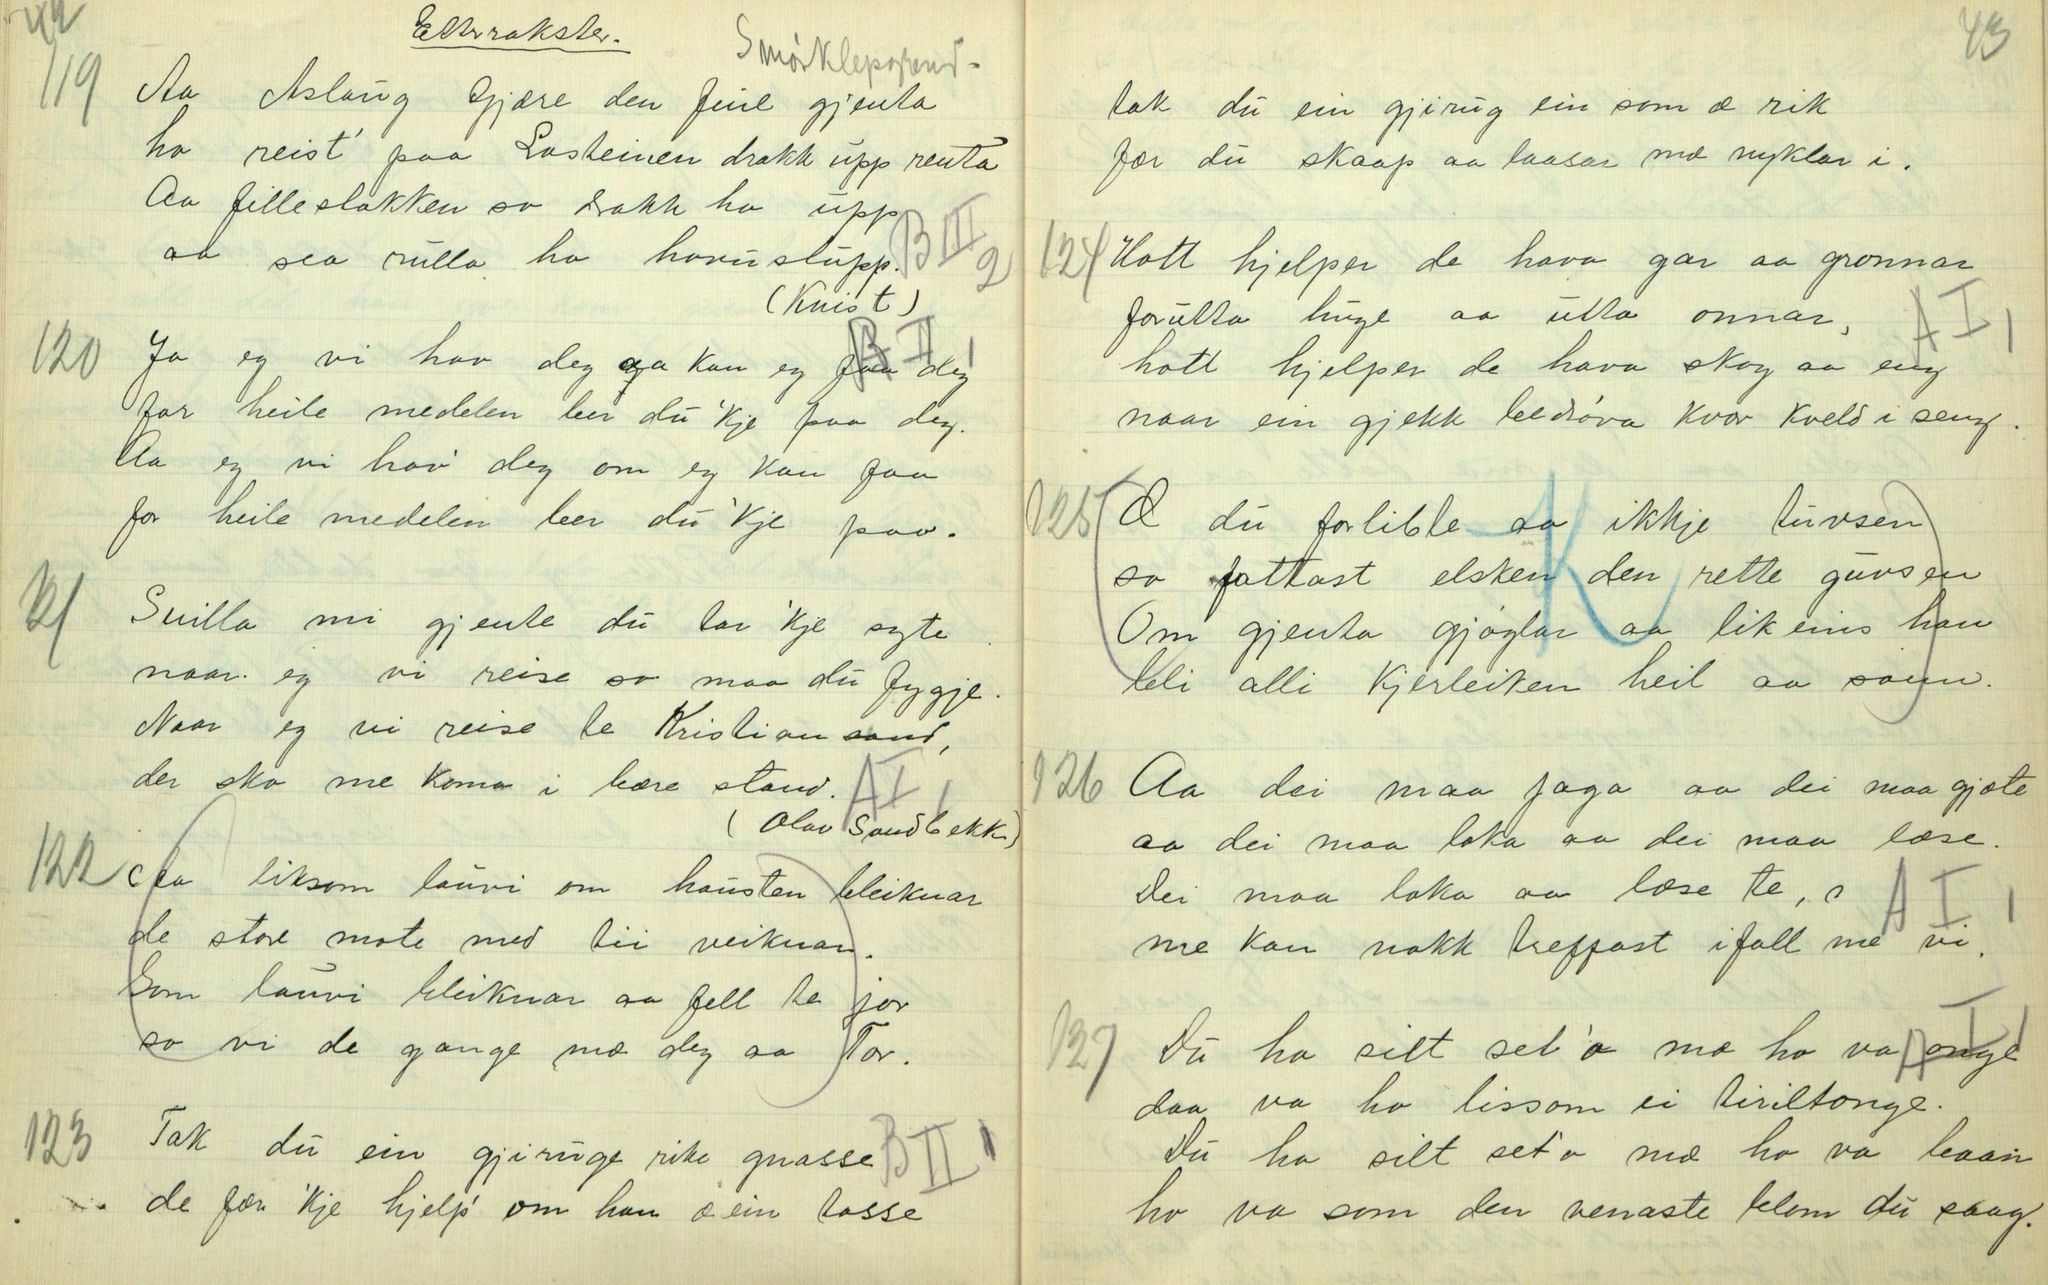 42
Etterrakster.
Smørkleppstend-
119 Aa Aslaug Gjære den fine gjenta
ho reist' paa Lasteinen drakk upp renta
Aa filleslakken so drakk ho upp
aa sea rulla ho havustupp. B III 2
(Knist)
120 Ja eg vi hav deg aa kan eg faa deg B II 1
for heile medelen leer du 'kje paa deg.
Aa eg vi hav' deg om eg kan faa
for heile medelen leer du 'kje paa.
121 Snilla mi gjente du tar 'kje syte
naar eg vi reise so maa du fygje.
Naar eg vi reise te Kristiansand,
der ska me koma i bære stand. A I 1
(Olav Sandbekk)
122 Aa liksom lauvi om hausten bleiknar
de store mote med tii veiknar.
Som lauvi bleiknar aa fell te jor
so vi de gange mæ deg aa Tor.
123 Tak du ein gjiruge rike gnasse B II 1
de fær 'kje hjelp' om han æ ein tasse
43
tak du ein gjirug ein som æ rik
fær du skaap aa laasar mæ nyklar i.
124 Hott hjelper de hava gar aa gronnar
forutta huge aa utta onnar, A I 1
hott hjelper de hava skog aa eng
naar ein gjekk bedrøva kvar kveld i seng.
125 Æ du forlible aa ikkje tuvsen K
so fattast elsken den rette guvsen
Om gjenta gjøglar aa likeins han
bli alli kjerleiken heil aa sann.
126 Aa dei maa jaga aa dei maa gjæte
aa dei maa loka aa dei maa læse.
Dei maa loka aa læse te, A I 1
me kan nokk treffast ifall me vi.
127 Du ha silt set'a mæ ho va onge A I 1
daa va ho lissom ei tiriltonge.
Du ha silt set'a mæ ho va baan
ho va som den venaste blom du saag.